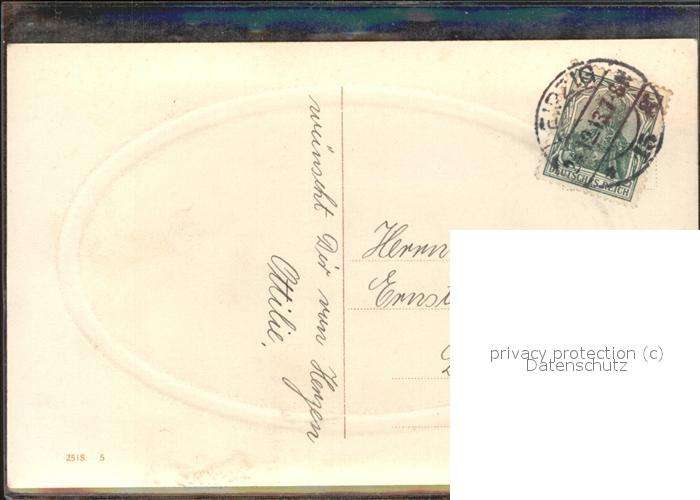 wünscht Dir von Herzen
Ottilie.
LEIPZIG
DEUTSCHES REICH
Herrn
Ernst
privacy protection (c)
Datenschutz
2518 5